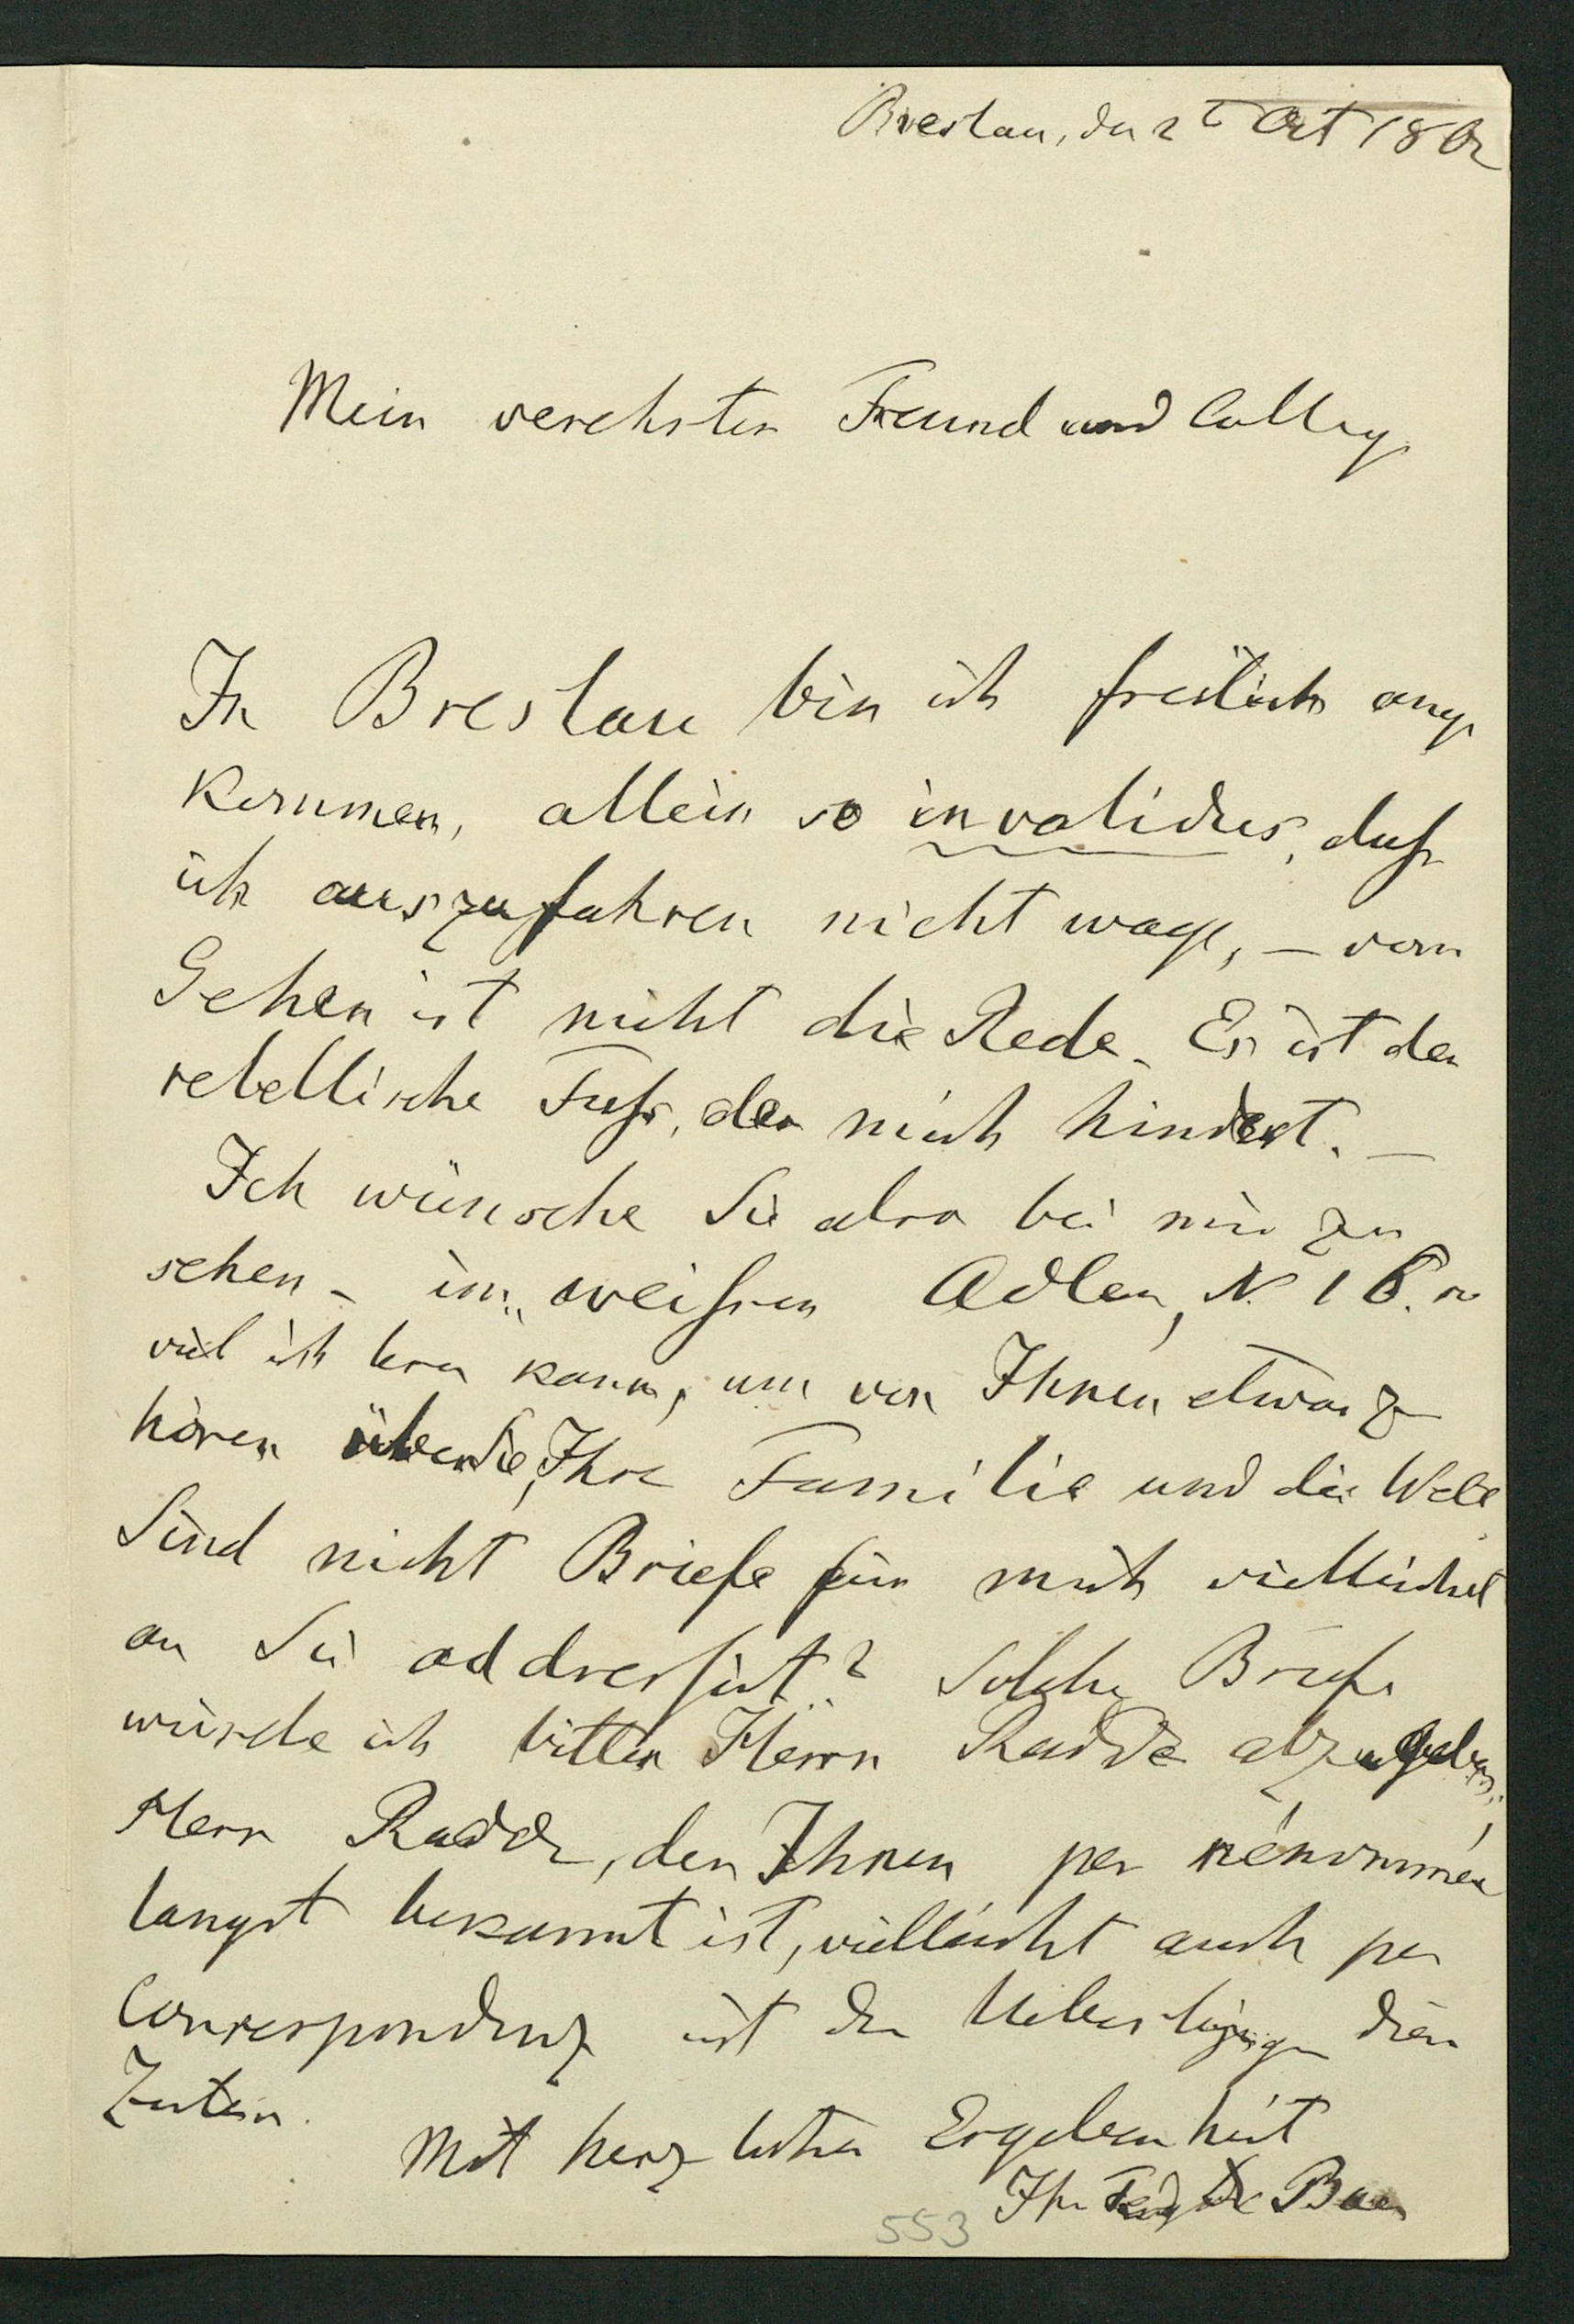 Breslau, den 2t Oct 186
Mein verehrter Freund und Colleg
In Breslau bin ich freilich ange
kommen, allein so invalidus, dass
ich auszufahren nicht wage, – vom
Gehen ist nicht die Rede. Es ist der
rebellische Fuss, der mich hindert. –
Ich wünsche Sie also bei mir zu
sehen – im „weissen Adler, N 16. so
viel ich kann, um von Ihnen etwas zu
hören über Sie, Ihre Familie und die Welt
Sind nicht Briefe für mich vielleicht
an Sie addressirt? Solche Briefe
würde ich bitten Herrn Radde abzugeben.
Herr Radde, der Ihnen per renommée
längst bekannt ist, vielleicht auch per
Correspondenz ist der Ueberbringer dieser
Zeilen.
Mit herzlicher Ergebenheit
Ihr Baer
553